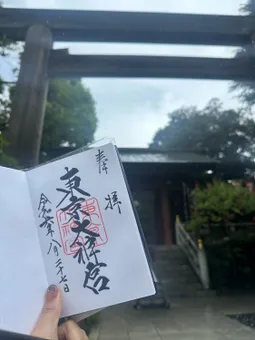 奉拝
東京大神宮
令和六年八月二十七日